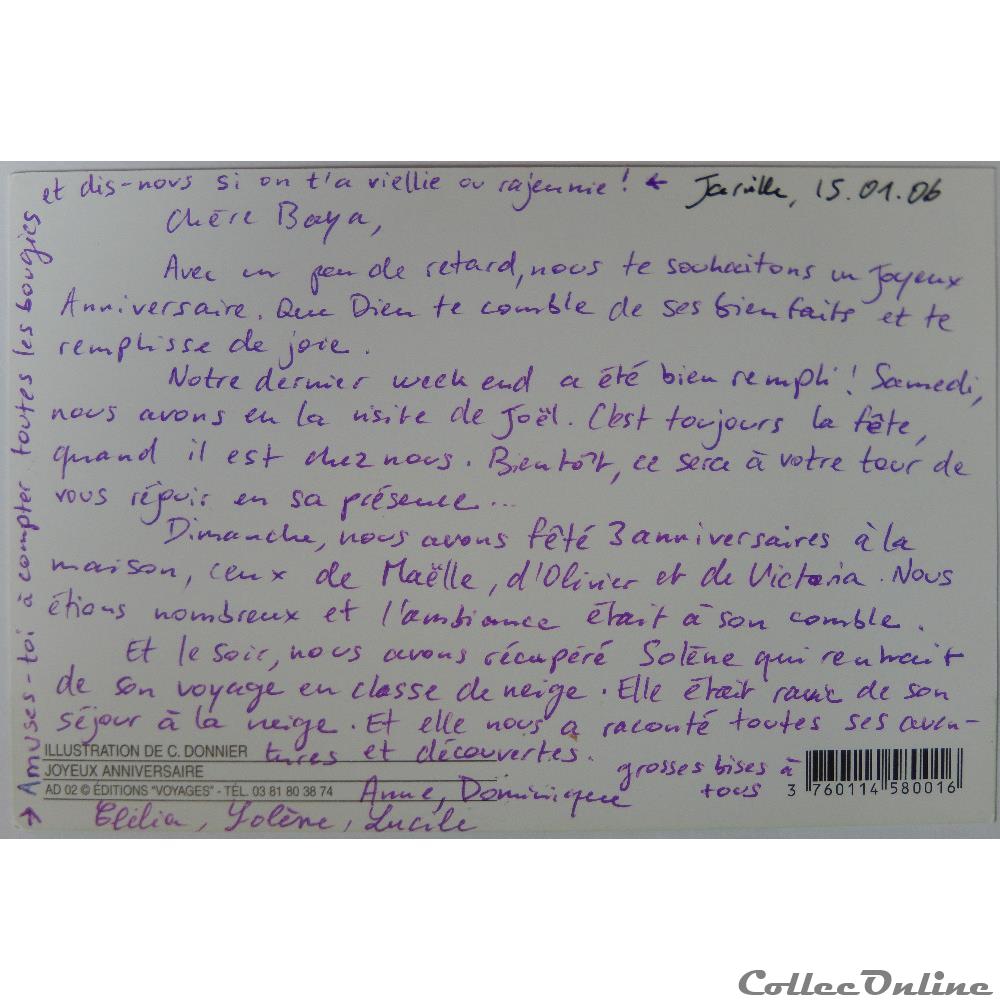 et dis-nous si on t'a viellie ou rajeunie ! ← Jarville, 15.01.06
Chère Baya,
Avec un peu de retard, nous te souhaitons un Joyeux
Anniversaire. Que Dieu te comble de ses bienfaits et te
remplisse de joie.
Notre dernier week end a été bien rempli ! Samedi,
nous avons eu la visite de Joël. C'est toujours la fête,
quand il est chez nous. Bientôt, ce sera à votre tour de
vous réjouir en sa présence...
Dimanche, nous avons fêté 3 anniversaires à la
maison, ceux de Maëlle, d'Olivier et de Victoria. Nous
étions nombreux et l'ambiance était à son comble.
Et le soir, nous avons récupéré Solène qui rentrait
de son voyage en classe de neige. Elle était ravie de son
séjour à la neige. Et elle nous a raconté toutes ses aven-
tures et découvertes.
grosses bises à
tous
Anne, Dominique
Clélia, Solène, Lucile
→ Amuses-toi à compter toutes les bougies
ILLUSTRATION DE C. DONNIER
JOYEUX ANNIVERSAIRE
AD 02 © ÉDITIONS "VOYAGES" - TÉL. 03 81 80 38 74
3 760114 580016
CollecOnline